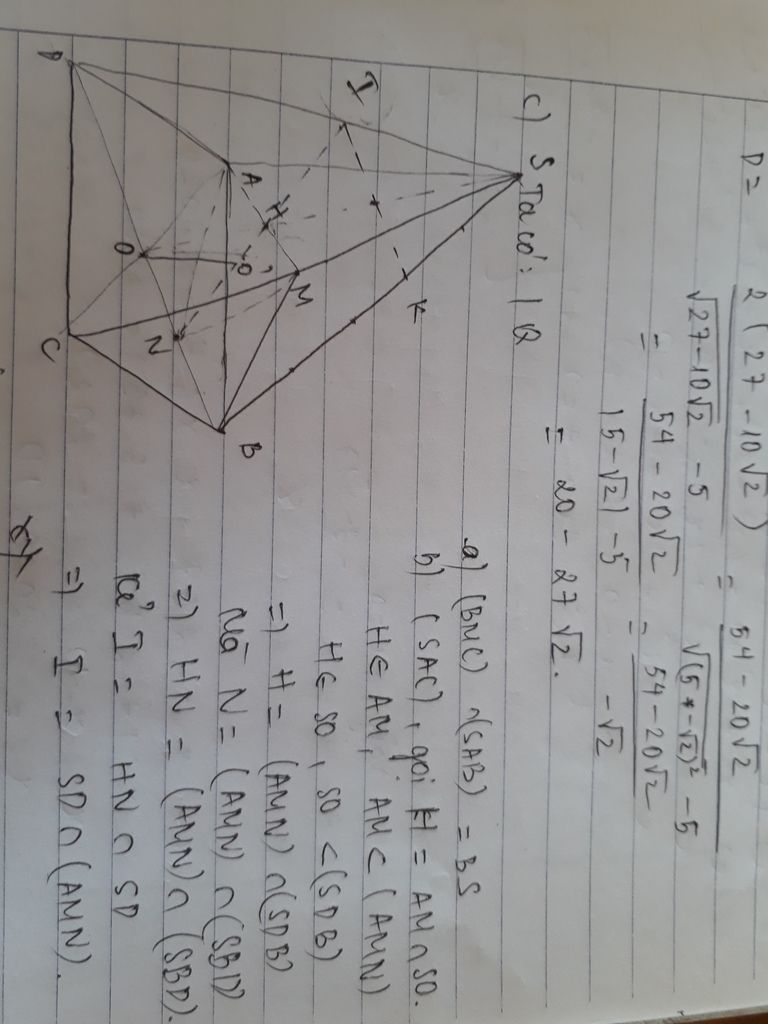 D = 2(27-10√2) / (√27-10√2 - 5) = 54-20√2 / (√(5-√2)² - 5)
= 54-20√2 / (|5-√2| - 5) = 54-20√2 / -√2
= 20 - 27√2.
c) Ta có: |Q
S
I
K
A
H
M
O'
O
N
D
C
B
a) (BMC) ∩ (SAB) = BS
b) (SAC), gọi H = AM ∩ SO.
H ∈ AM, AM ⊂ (AMN)
H ∈ SO, SO ⊂ (SDB)
=) H = (AMN) ∩ (SDB)
Mà N = (AMN) ∩ (SBD)
=) HN = (AMN) ∩ (SBD).
Kẻ I = HN ∩ SD
=) I = SD ∩ (AMN).